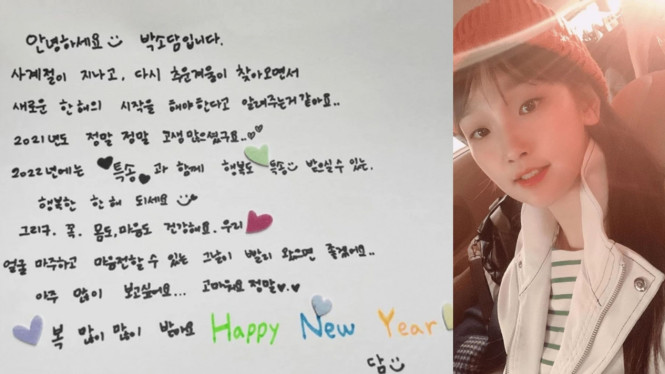 안녕하세요 박소담입니다.
사계절이 지나고, 다시 추운겨울이 찾아오면서
새로운 한해의 시작을 해야한다고 알려주는거 같아요..
2021년도 정말 정말 고생 많으셨구요..♡♥
2022년에는 ♥특송♥과 함께 행복도 특송 받으실 수 있는.
행복한 한 해 되세요
그리구. 꼭. 몸도, 마음도 건강해요. 우리
얼굴 마주하고 마음전할 수 있는 그날이 빨리 왔으면 좋겠어요..
아주 많이 보고싶어요... 고마워요 정말♥.♥
복 많이 많이 받아요 Happy New Year
담